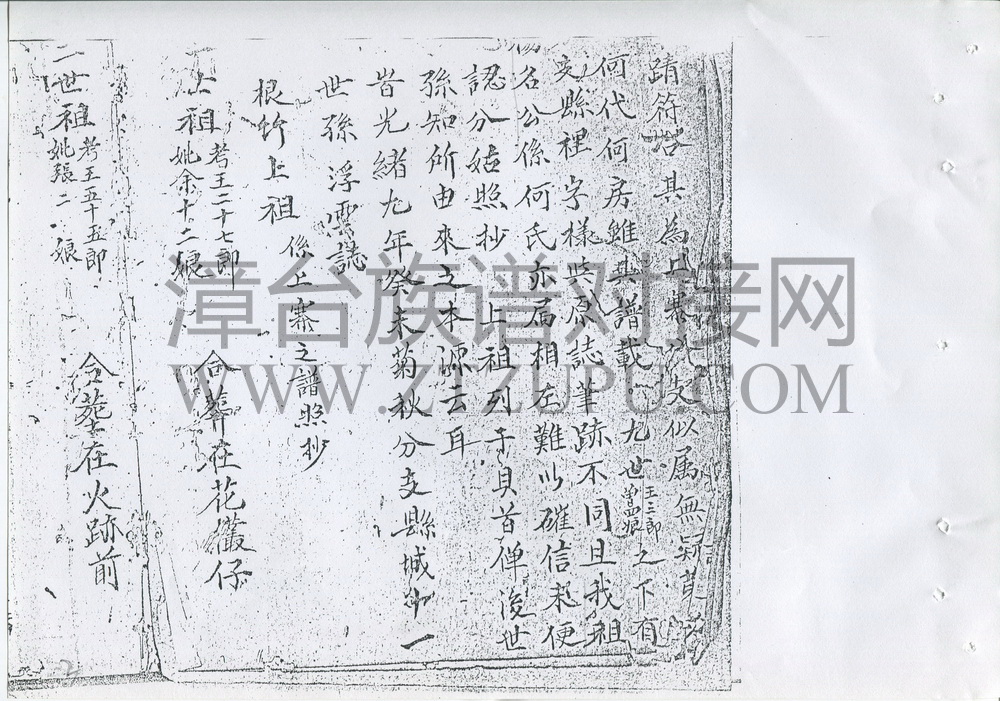 蹟符合其為上寨分支似属無疑竟
何代何房雖其譜載九世王三郎曾四娘之下有
亥縣裡字樣与原誌筆跡不同且我祖
名公係何氏亦属相左難以確信未便
認分姑照抄上祖列于貝首俾後世
孫知所由來之本源云耳
旹光緒九年癸未菊秋分支縣城十一
世孫浮雲誌
根竹上祖係上寨之譜照抄
上祖考王二十七郎妣余十二娘合葬在花欉仔
二世祖考王五十五郎妣張二娘合葬在火跡前
漳台族谱对接网
WWW.ZTZUPU.COM